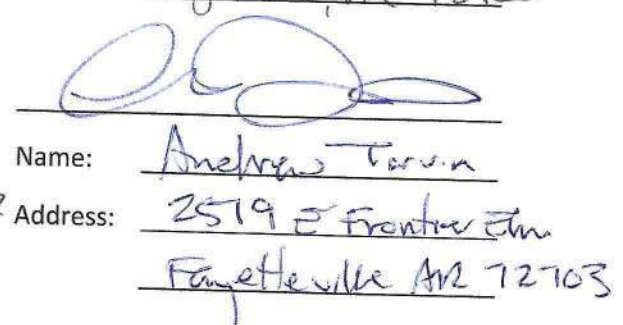 Name: Andrew Tarvin
Address: 2519 E Frontier Elm
Fayetteville AR 72703